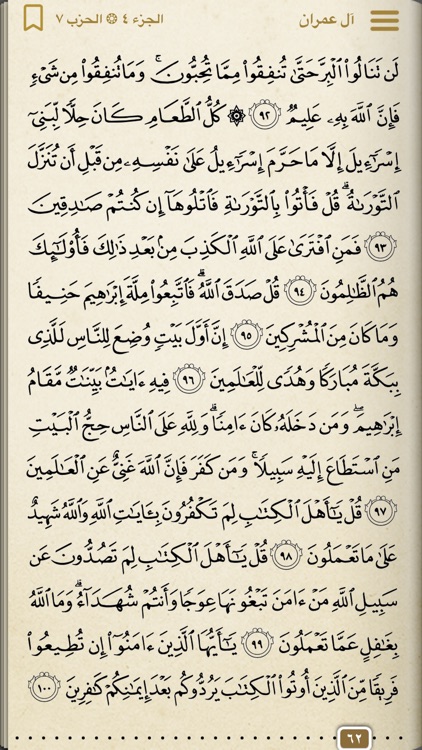 آل عمران
الجزء ٤ ۞ الحزب ٧
لَن تَنَالُوا۟ ٱلْبِرَّ حَتَّىٰ تُنفِقُوا۟ مِمَّا تُحِبُّونَ ۚ وَمَا تُنفِقُوا۟ مِن شَىْءٍ
فَإِنَّ ٱللَّهَ بِهِۦ عَلِيمٌ ٩٢ ۞ كُلُّ ٱلطَّعَامِ كَانَ حِلًّا لِّبَنِىٓ
إِسْرَٰٓءِيلَ إِلَّا مَا حَرَّمَ إِسْرَٰٓءِيلُ عَلَىٰ نَفْسِهِۦ مِن قَبْلِ أَن تُنَزَّلَ
ٱلتَّوْرَىٰةُ ۗ قُلْ فَأْتُوا۟ بِٱلتَّوْرَىٰةِ فَٱتْلُوهَآ إِن كُنتُمْ صَـٰدِقِينَ
٩٣ فَمَنِ ٱفْتَرَىٰ عَلَى ٱللَّهِ ٱلْكَذِبَ مِنۢ بَعْدِ ذَٰلِكَ فَأُو۟لَـٰٓئِكَ
هُمُ ٱلظَّـٰلِمُونَ ٩٤ قُلْ صَدَقَ ٱللَّهُ ۗ فَٱتَّبِعُوا۟ مِلَّةَ إِبْرَٰهِيمَ حَنِيفًا
وَمَا كَانَ مِنَ ٱلْمُشْرِكِينَ ٩٥ إِنَّ أَوَّلَ بَيْتٍ وُضِعَ لِلنَّاسِ لَلَّذِى
بِبَكَّةَ مُبَارَكًا وَهُدًى لِّلْعَـٰلَمِينَ ٩٦ فِيهِ ءَايَـٰتٌۢ بَيِّنَـٰتٌ مَّقَامُ
إِبْرَٰهِيمَ ۖ وَمَن دَخَلَهُۥ كَانَ ءَامِنًا ۗ وَلِلَّهِ عَلَى ٱلنَّاسِ حِجُّ ٱلْبَيْتِ
مَنِ ٱسْتَطَاعَ إِلَيْهِ سَبِيلًا ۚ وَمَن كَفَرَ فَإِنَّ ٱللَّهَ غَنِىٌّ عَنِ ٱلْعَـٰلَمِينَ
٩٧ قُلْ يَـٰٓأَهْلَ ٱلْكِتَـٰبِ لِمَ تَكْفُرُونَ بِـَٔايَـٰتِ ٱللَّهِ وَٱللَّهُ شَهِيدٌ
عَلَىٰ مَا تَعْمَلُونَ ٩٨ قُلْ يَـٰٓأَهْلَ ٱلْكِتَـٰبِ لِمَ تَصُدُّونَ عَن
سَبِيلِ ٱللَّهِ مَنْ ءَامَنَ تَبْغُونَهَا عِوَجًا وَأَنتُمْ شُهَدَآءُ ۗ وَمَا ٱللَّهُ
بِغَـٰفِلٍ عَمَّا تَعْمَلُونَ ٩٩ يَـٰٓأَيُّهَا ٱلَّذِينَ ءَامَنُوٓا۟ إِن تُطِيعُوا۟
فَرِيقًا مِّنَ ٱلَّذِينَ أُوتُوا۟ ٱلْكِتَـٰبَ يَرُدُّوكُم بَعْدَ إِيمَـٰنِكُمْ كَـٰفِرِينَ ١٠٠
٦٢